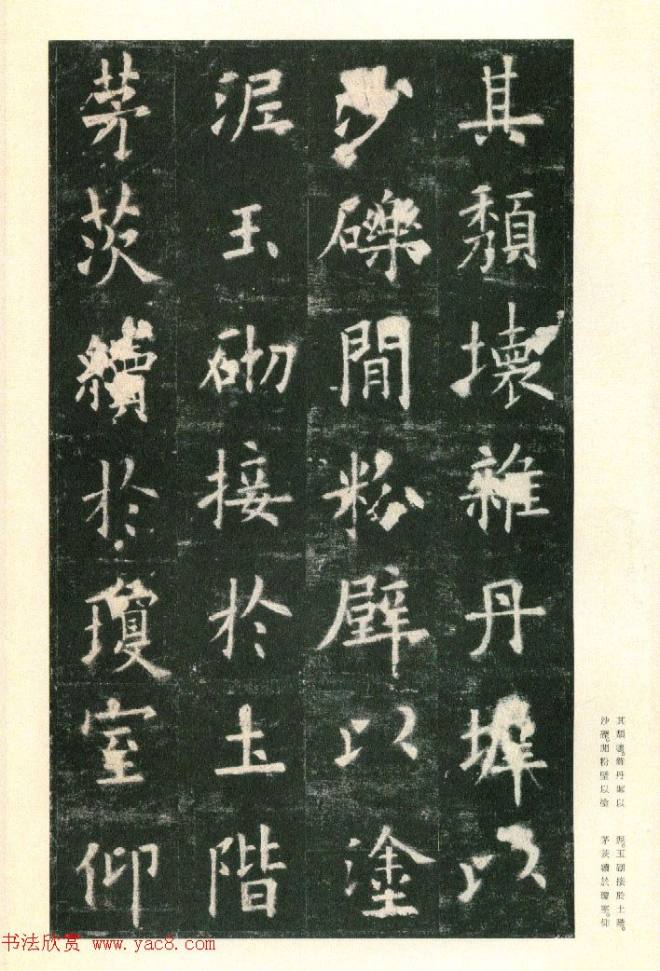 其頹壞雜丹墀以
沙礫間粉壁以塗
泥玉砌接於土階
茅茨續於瓊室仰
其頹壞。雜丹墀以
沙礫。間粉壁以塗
泥。玉砌接於土階。
茅茨續於瓊室。仰
书法欣赏 www.yac8.com